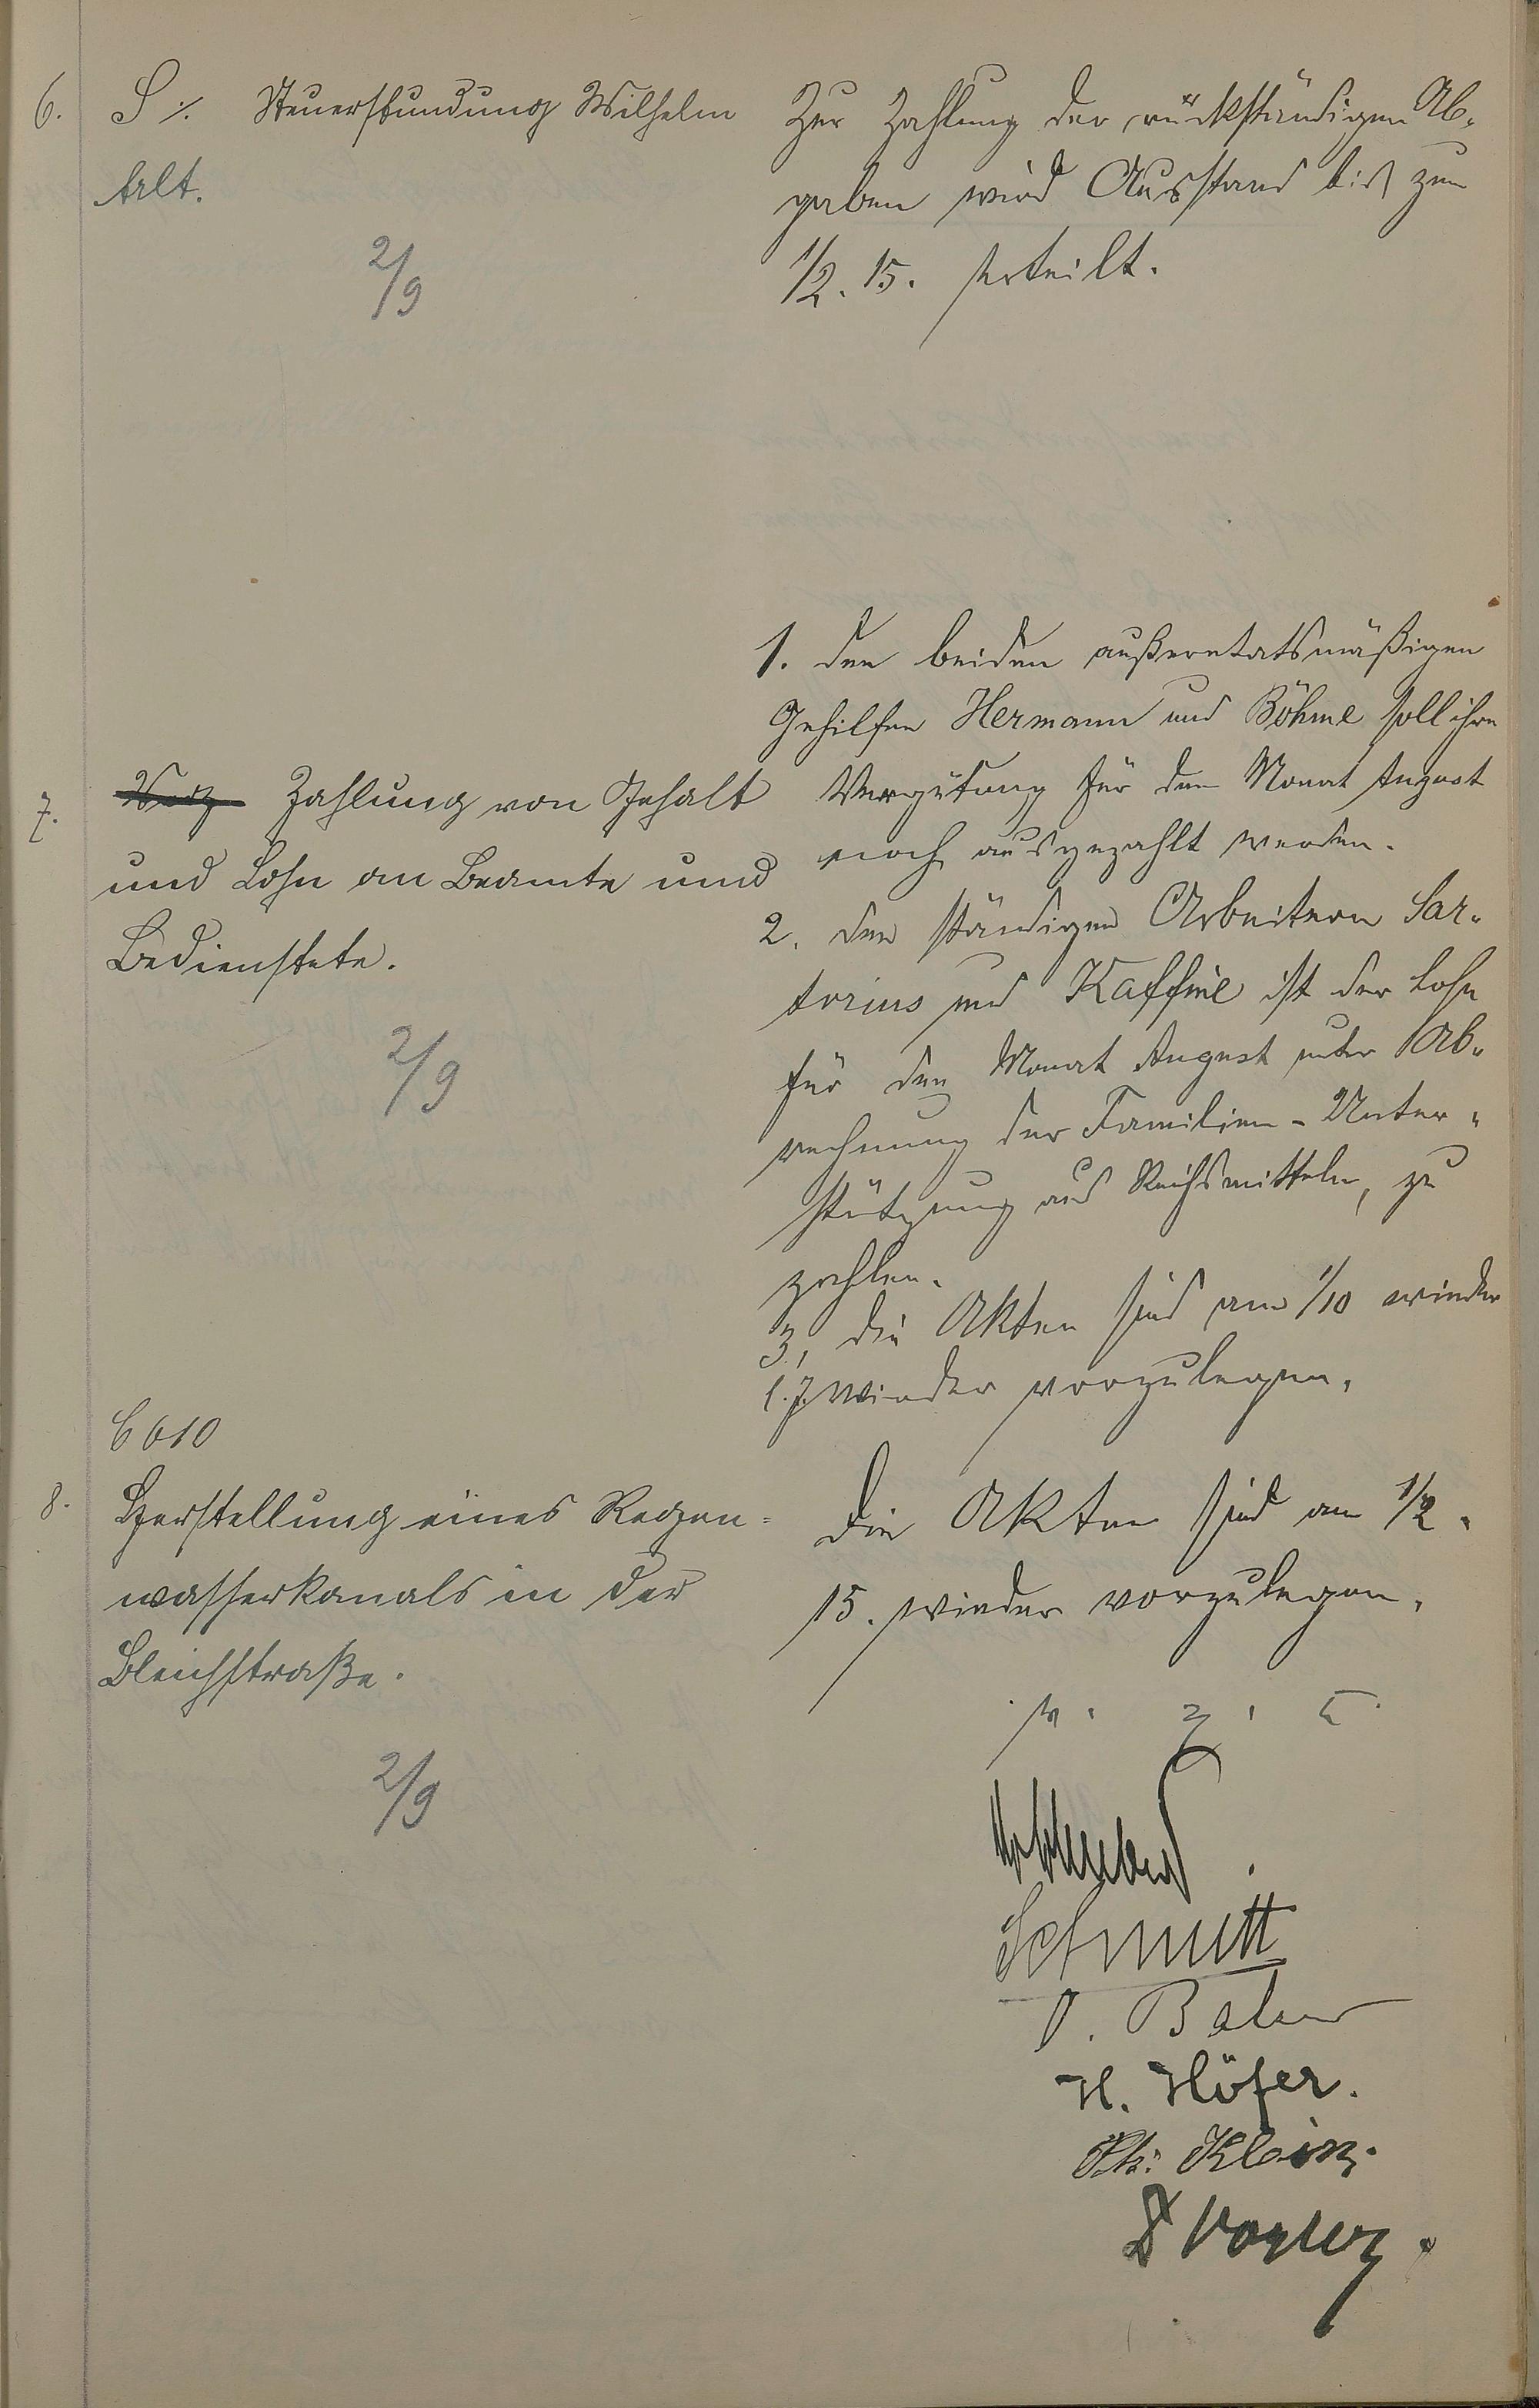 6.
S ./. Steuerstundung Wilhelm
Arlt.
2/9
Zur Zahlung der rückständigen Ab-
gaben wird Ausstand bis zum
1/2. 15. erteilt.
7.
Zahlung von Gehalt
und Lohn an Beamte und
Bedienstete.
2/9
1. den beiden außeretatsmäßigen
Gehilfen Hermann und Böhme soll ihre
Vergütung für den Monat August
noch ausgezahlt werden.
2. den ständigen Arbeitern Sar-
torius und Kaffine ist der Lohn
für den Monat August unter Ab-
rechnung der Familien-Unter-
stützung aus Reichsmitteln, zu
zahlen.
3, die Akten sind am 1/10 wieder
l. J. wieder vorzulegen.
6610
8.
Herstellung eines Regen-
wasserkanals in der
Bleichstraße.
2/9
Die Akten sind am 1/2.
15. wieder vorzulegen.
v. g. u.
Schmitt
H. Höfer.
Ph. Klein.